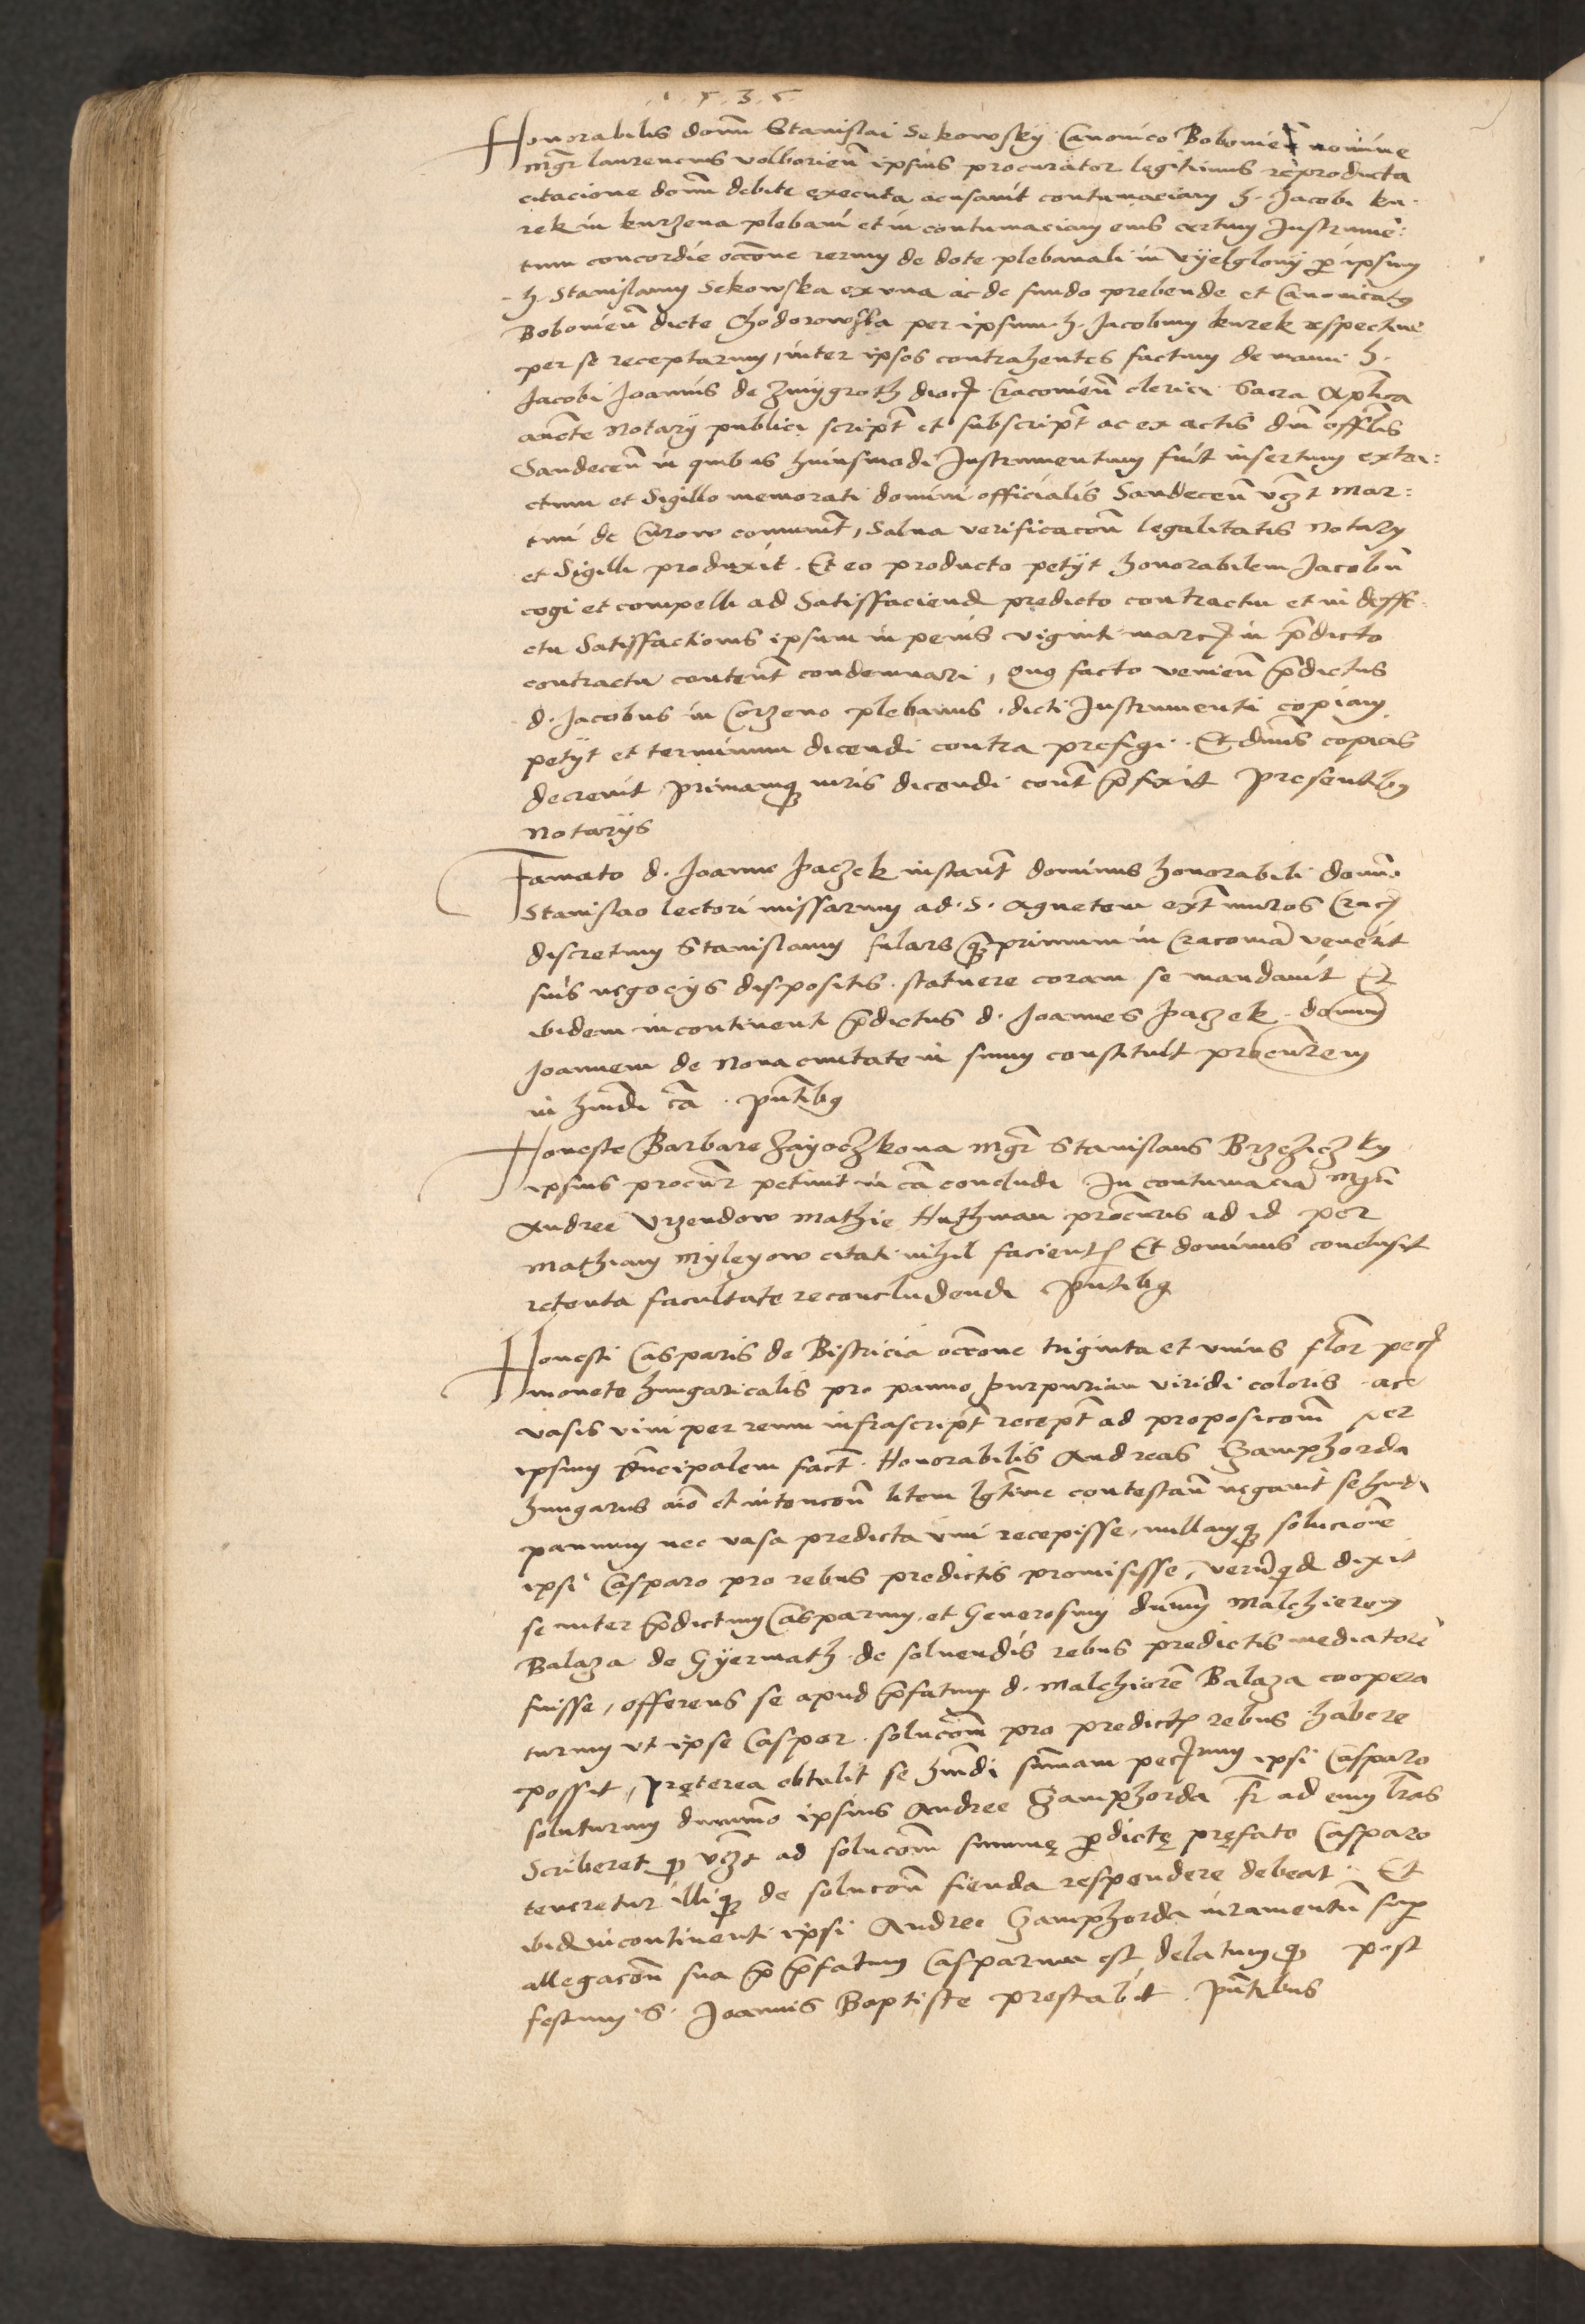 1535
Honorabilis domini Stanislai Sekowsky Canonico Bobowień nomine
Mgr laurencius volborień ipsius procurator legitimus reproducta
citacione domi debite executa acusavit contumaciam h. Jacobi ku-
rek in kurzena plebani et in contumaciam eius certum Instrumē:
tum concordie occōne rerum de dote plebanali in Vyelglowy p ipsum
h. Stanislaum Sekowska ex una ac de fundo prebende et Canonicatus
Bobowień dicte Chodorowska per ipsum h. Jacobum kurek respective
per se receptarum, inter ipsos contrahentes factum de manu h.
Jacobi Joannis de Zmygroth dioc Cracovień clerici Sacra Aplica
aucte Notary publici script et subscript ac ex actis dni offlis
Sandeceñ in quibus huiusmodi Instrumentum fuit insertum extra:
ctum et Sigillo memorati domini officialis Sandeceñ vczt Mar:
tini de Curow comunit, Salva verificacoñ legalitatis Notary
et Sigilli produxit. Et eo producto petyt honorabilem Jacobū
cogi et compelli ad Satisffaciend predicto contractu et in deffe
ctu Satisffactionis ipsum in penis viginti marc in pdicto
contractu content condemnari, Quo facto venień pdictus
d. Jacobus in Corzeno plebanus dicti Instrumenti copiam
petyt et terminum dicendi contra prefigi. Et dnus copias
decrevit primamq iuris dicendi cont pfixit Presentibus
Notarys
Famato d. Joanne paczek instant dominus honorabili domi.
Stanislao lectori missarum ad. S. Agnetem ext muros Crac
discretum Stanislaum fulars q primum in Cracoviā venerit
suis negocys dispositis statuere coram se mandavit Et
ibidem incontinenti pdictus d. Joannes paczek domin
Joannem de Nova civitate in suum constituit procurem
in hmdi cā. pntibus
Honeste Barbare Zayaczkova Mgr Stanislaus Brzezieczky
ipsius procur petivit in cā concludi In contumaciā Mgri
Andree Vrzendow Mathie Huthman procuris ad id per
Mathiam Myleyow citati nihil facient Et dominus conclusit
retenta facultate reconcludendi Pntibus
Honesti Casparis de Bistricia occōne triginta et unius flor pec
monete hungaricalis pro panno purpurian viridi coloris ac
vasis vini per reum infrascript recept ad proposicom per
ipsum principalem fact. Honorabilis Andreas Gamphorda
hungarus aīo et intencoñ litem lgtime contestañ negavit se hmdi
pannum nec vasa predicta vini recepisse, nullamq solucionē
ipsi Casparo pro rebus predictis promisisse, verū qd dixit
se inter pdictum Casparum et Generosum dnum Malchierem
Balaza de Gyermath de solvendis rebus predictis mediatorē
fuisse, offerens se apud pfatum d. Malchiorē Balaza coopera
turum ut ipse Casper solucom pro predict rebus habere
possit, pręterea obtulit se hmdi summam pec ipsi Casparo
soluturum dummo ipsius Andree Gamphorda fr ad eum lras
Scriberet q vczt ad solucom summę pdictę pręfato Casparo
teneretur illiq de solucoñ fienda respondere debeat. Et
ibid incontinenti ipsi Andree Gamphorda iuramentū sup
allegacoñ sua p pfatum Casparum est delatum q post
festum S. Joannis Baptiste prestabit. Pntibus